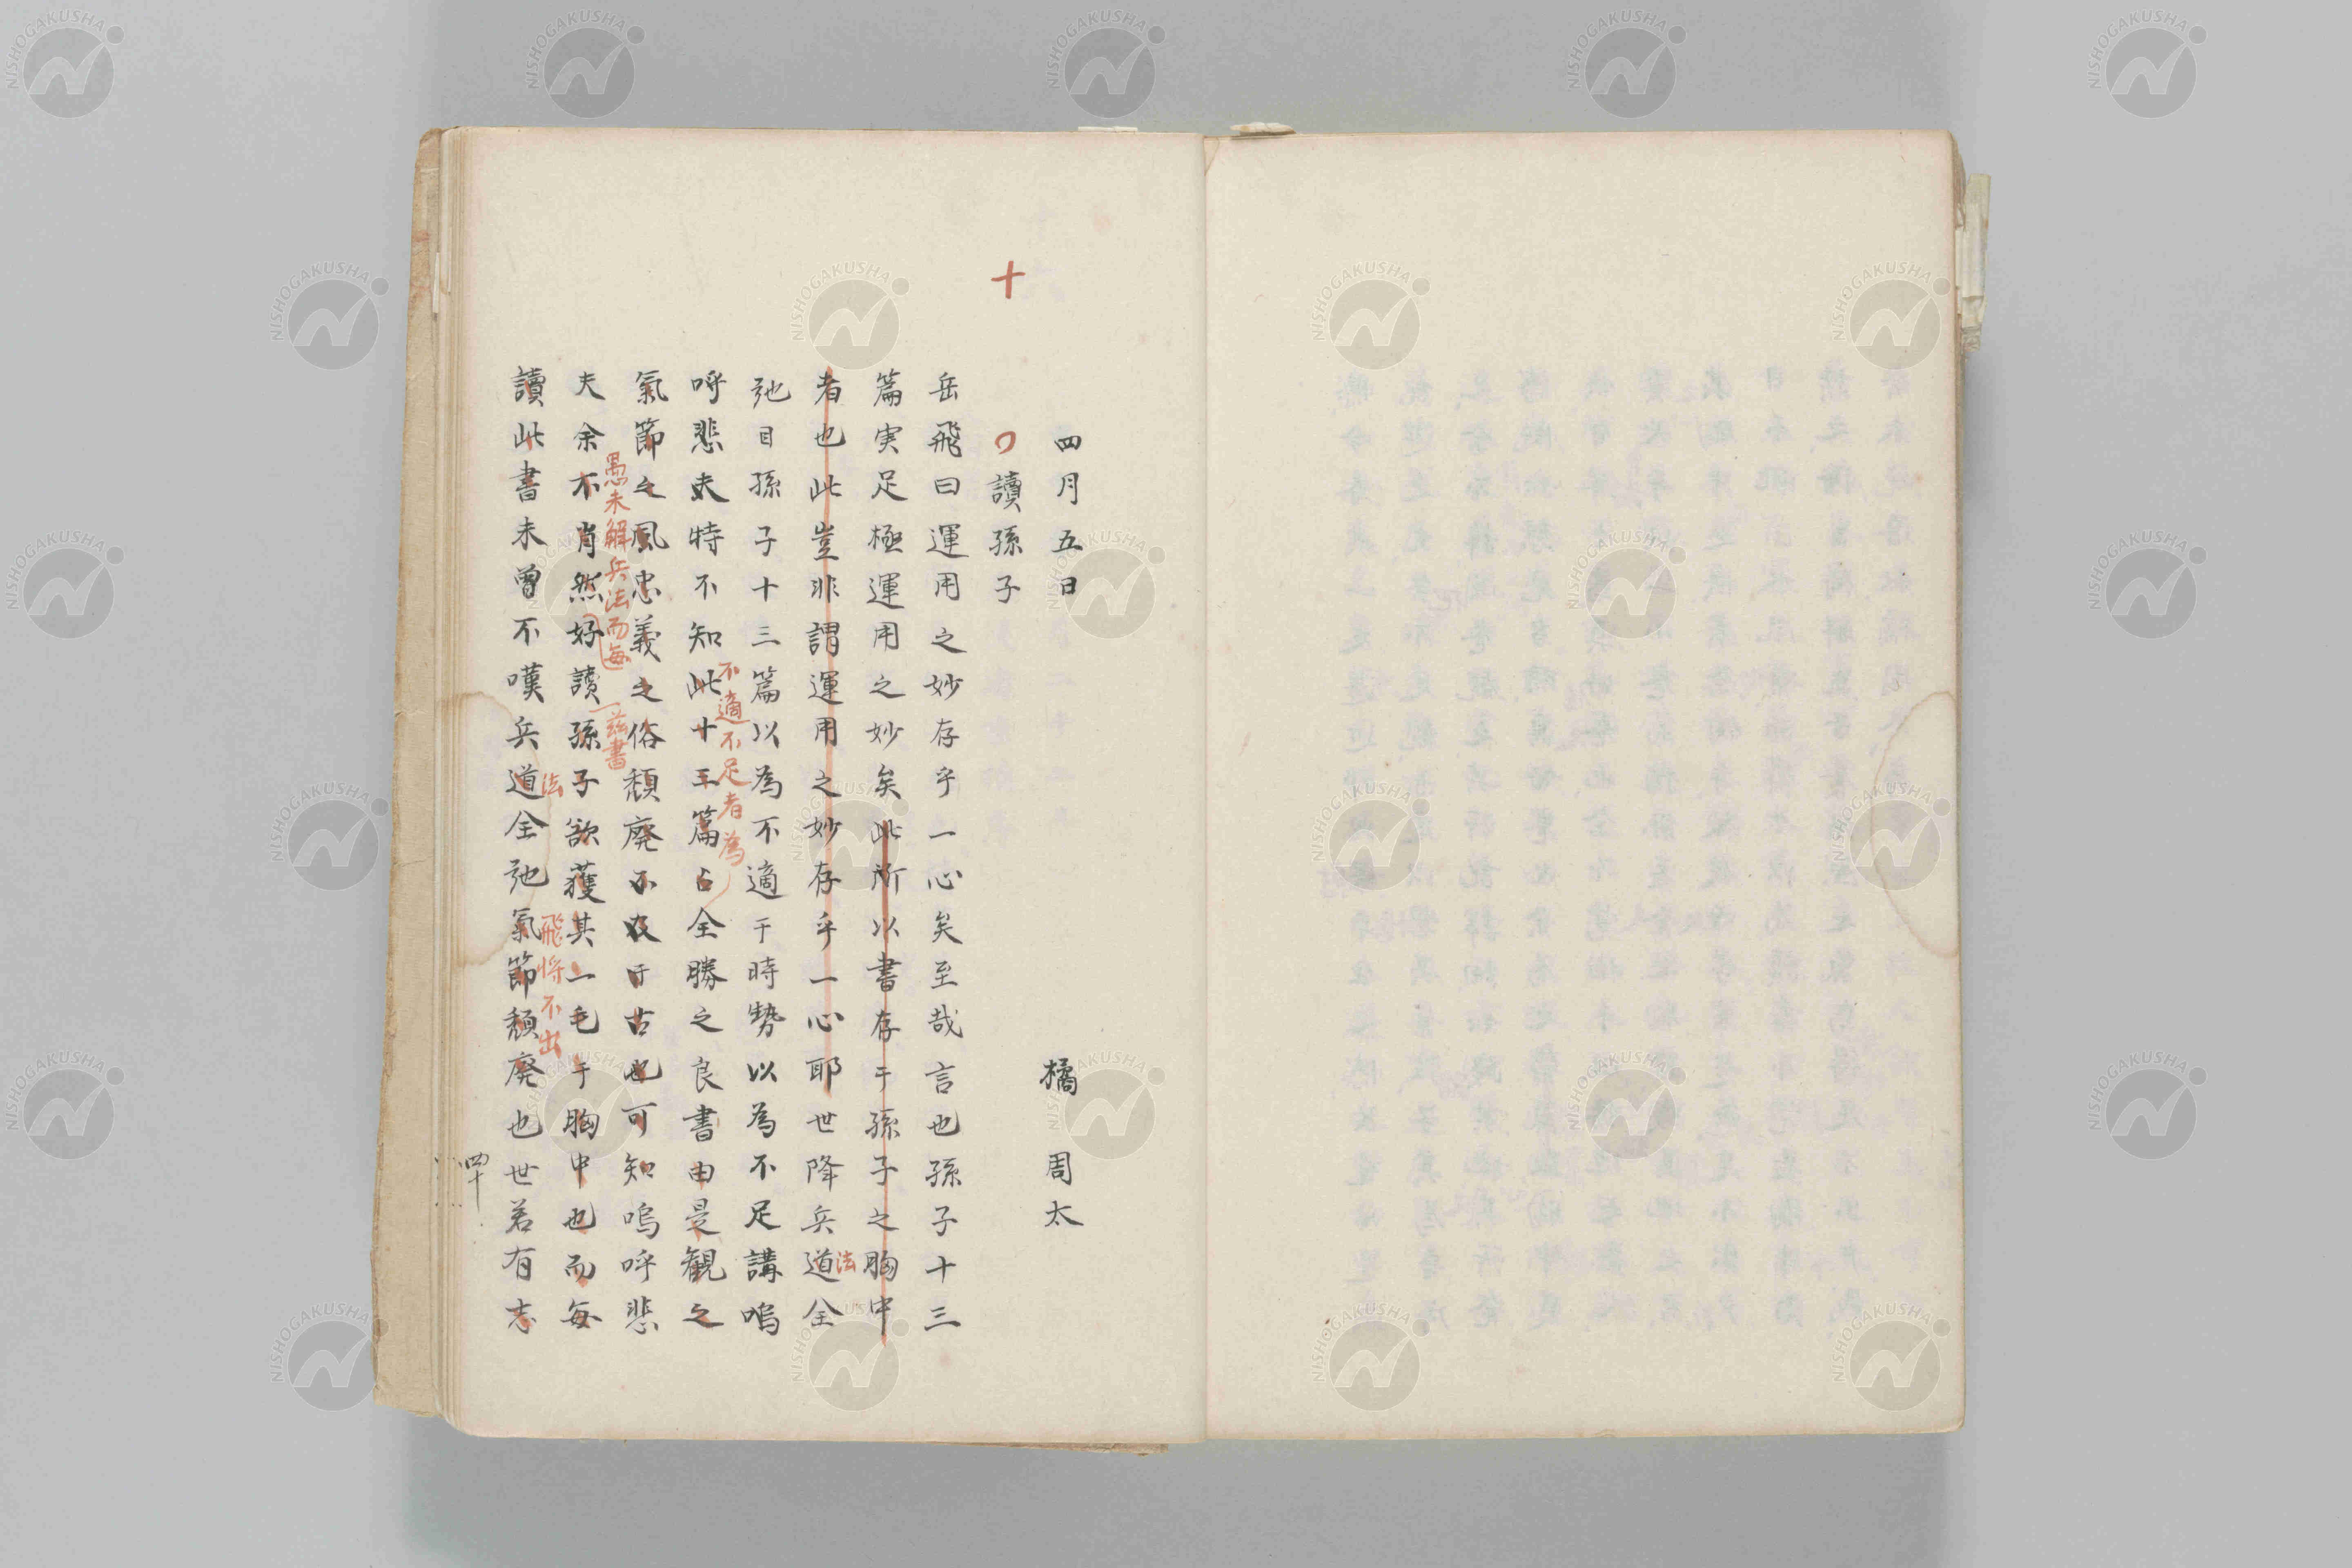 四月五日　橘周太
十
讀孫子
岳飛曰運用之妙存乎一心矣至哉言也孫子十三
篇実足極運用之妙矣此所以書存于孫子之胸中
者也此豈非謂運用之妙存乎一心耶世降兵道全
法
弛目孫子十三篇以為不適于時勢以為不足講嗚
呼悲夫特不知此十三篇占全勝之良書由是観之
不適不足者為
氣節之風忠義之俗頽廃不及于古也可知嗚呼悲
夫余不肖然好讀孫子欲獲其一毛于胸中也而每
愚未解兵法而每
茲書
讀此書未曽不嘆兵道全弛氣節頽廃也世若有志
法
飛将不出
四十
NISHOGAKUSHA